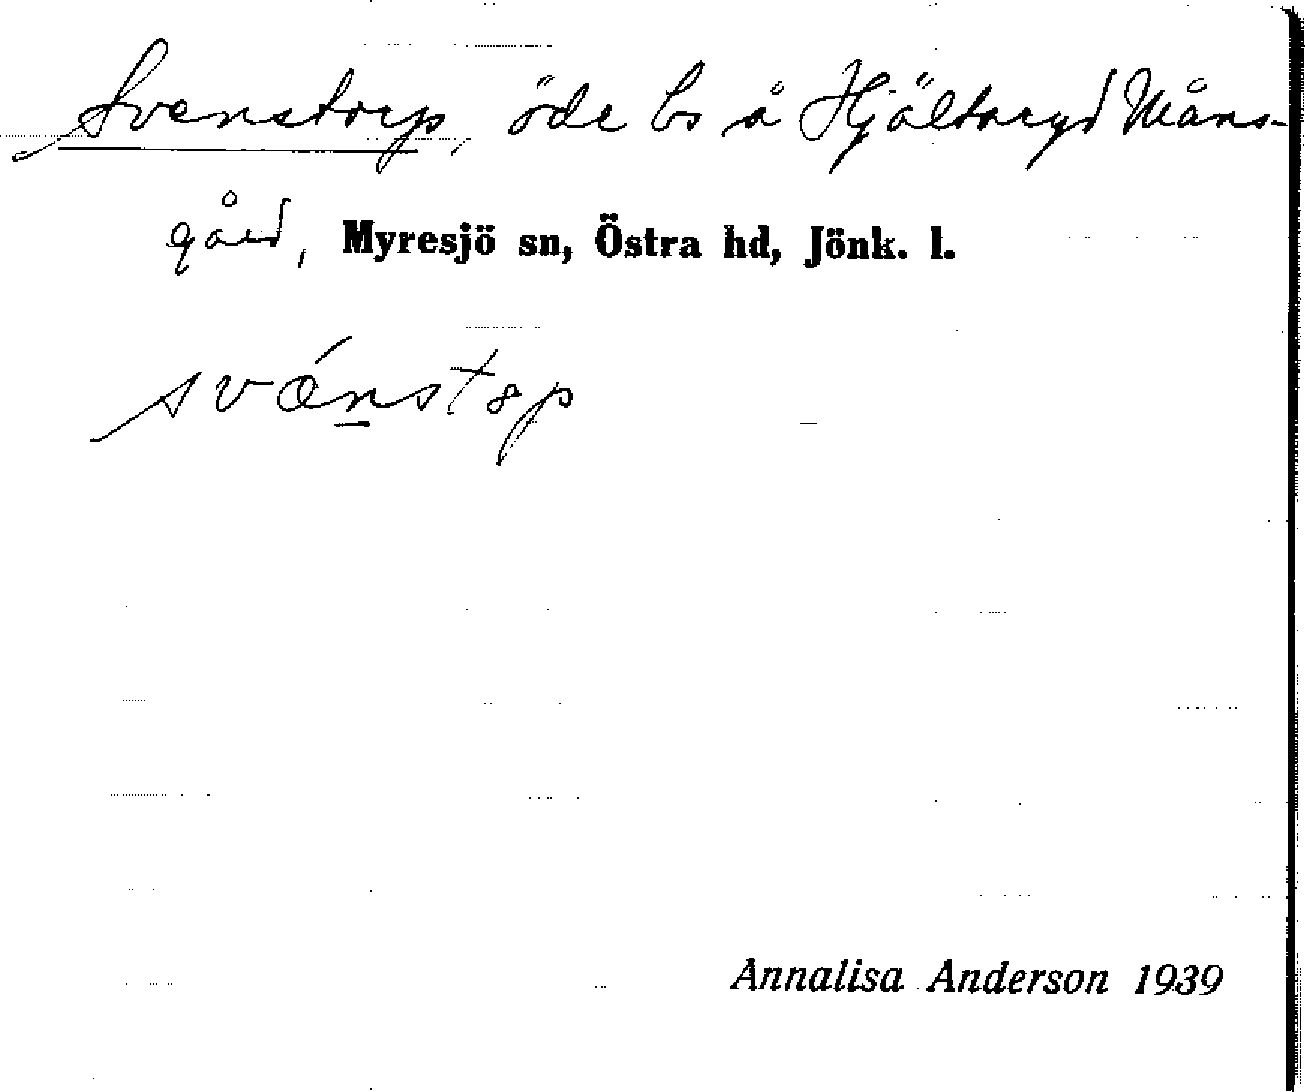 Svenstorp, öde bs å Hjältaryd Måns-
gård, Myresjö sn, Östra hd, Jönk. l.
Annalisa Anderson 1939